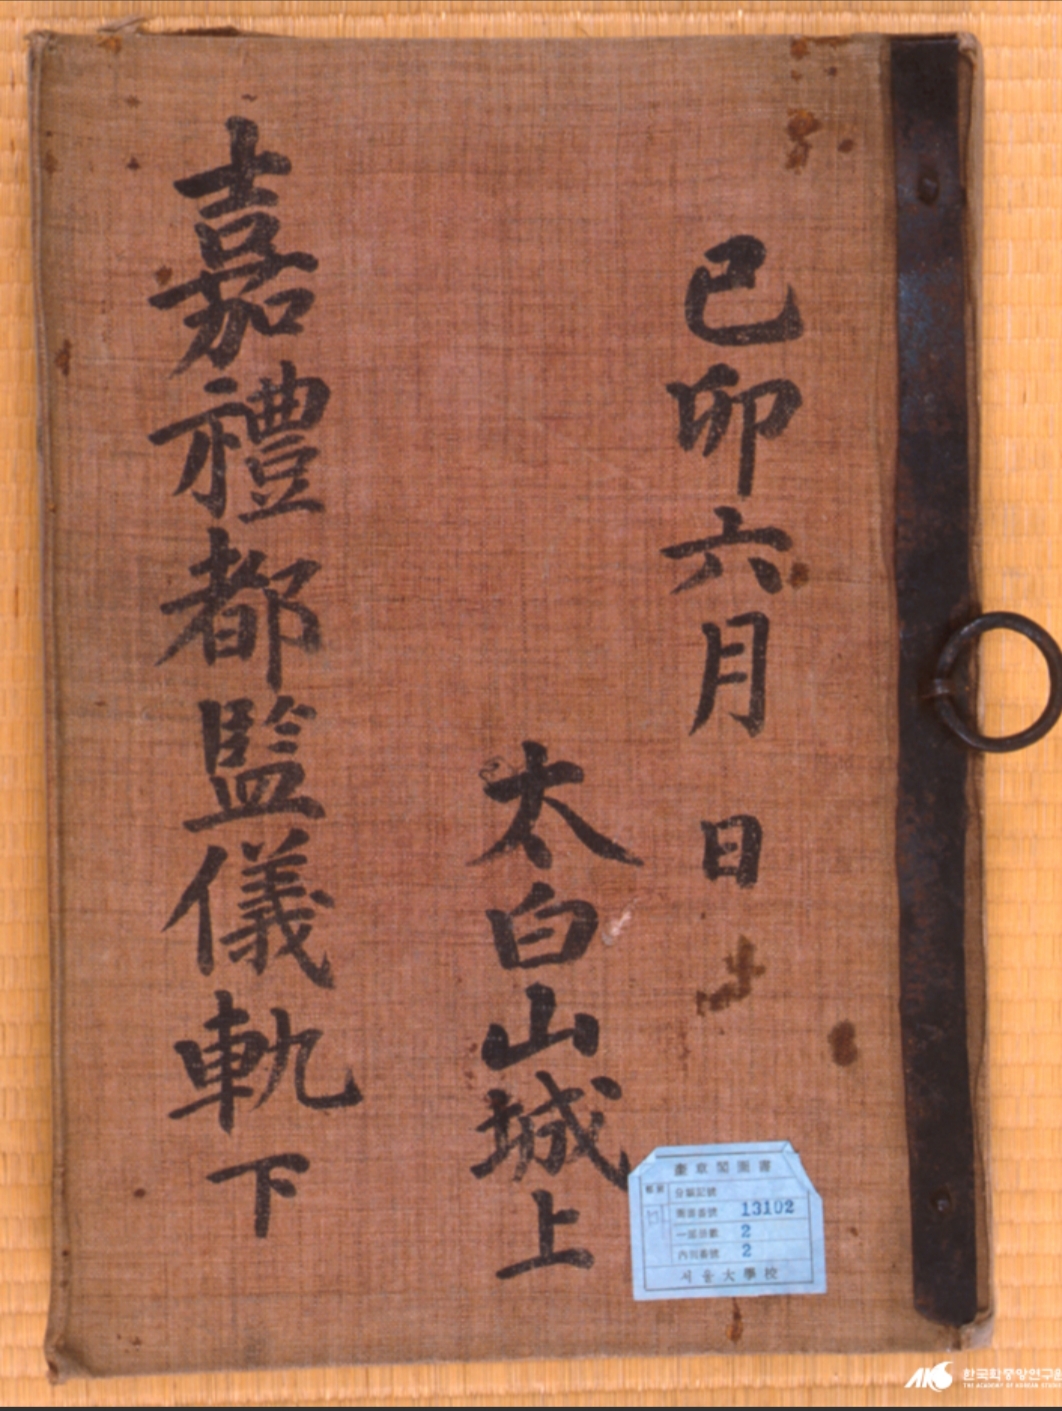 己卯六月 日
太白山城上
嘉禮都監儀軌 下
奎章閣圖書
分類記號
圖書番號 13102
一部冊數 2
內同番號 2
서울大學校
한국학중앙연구원
THE ACADEMY OF KOREAN STUDIES